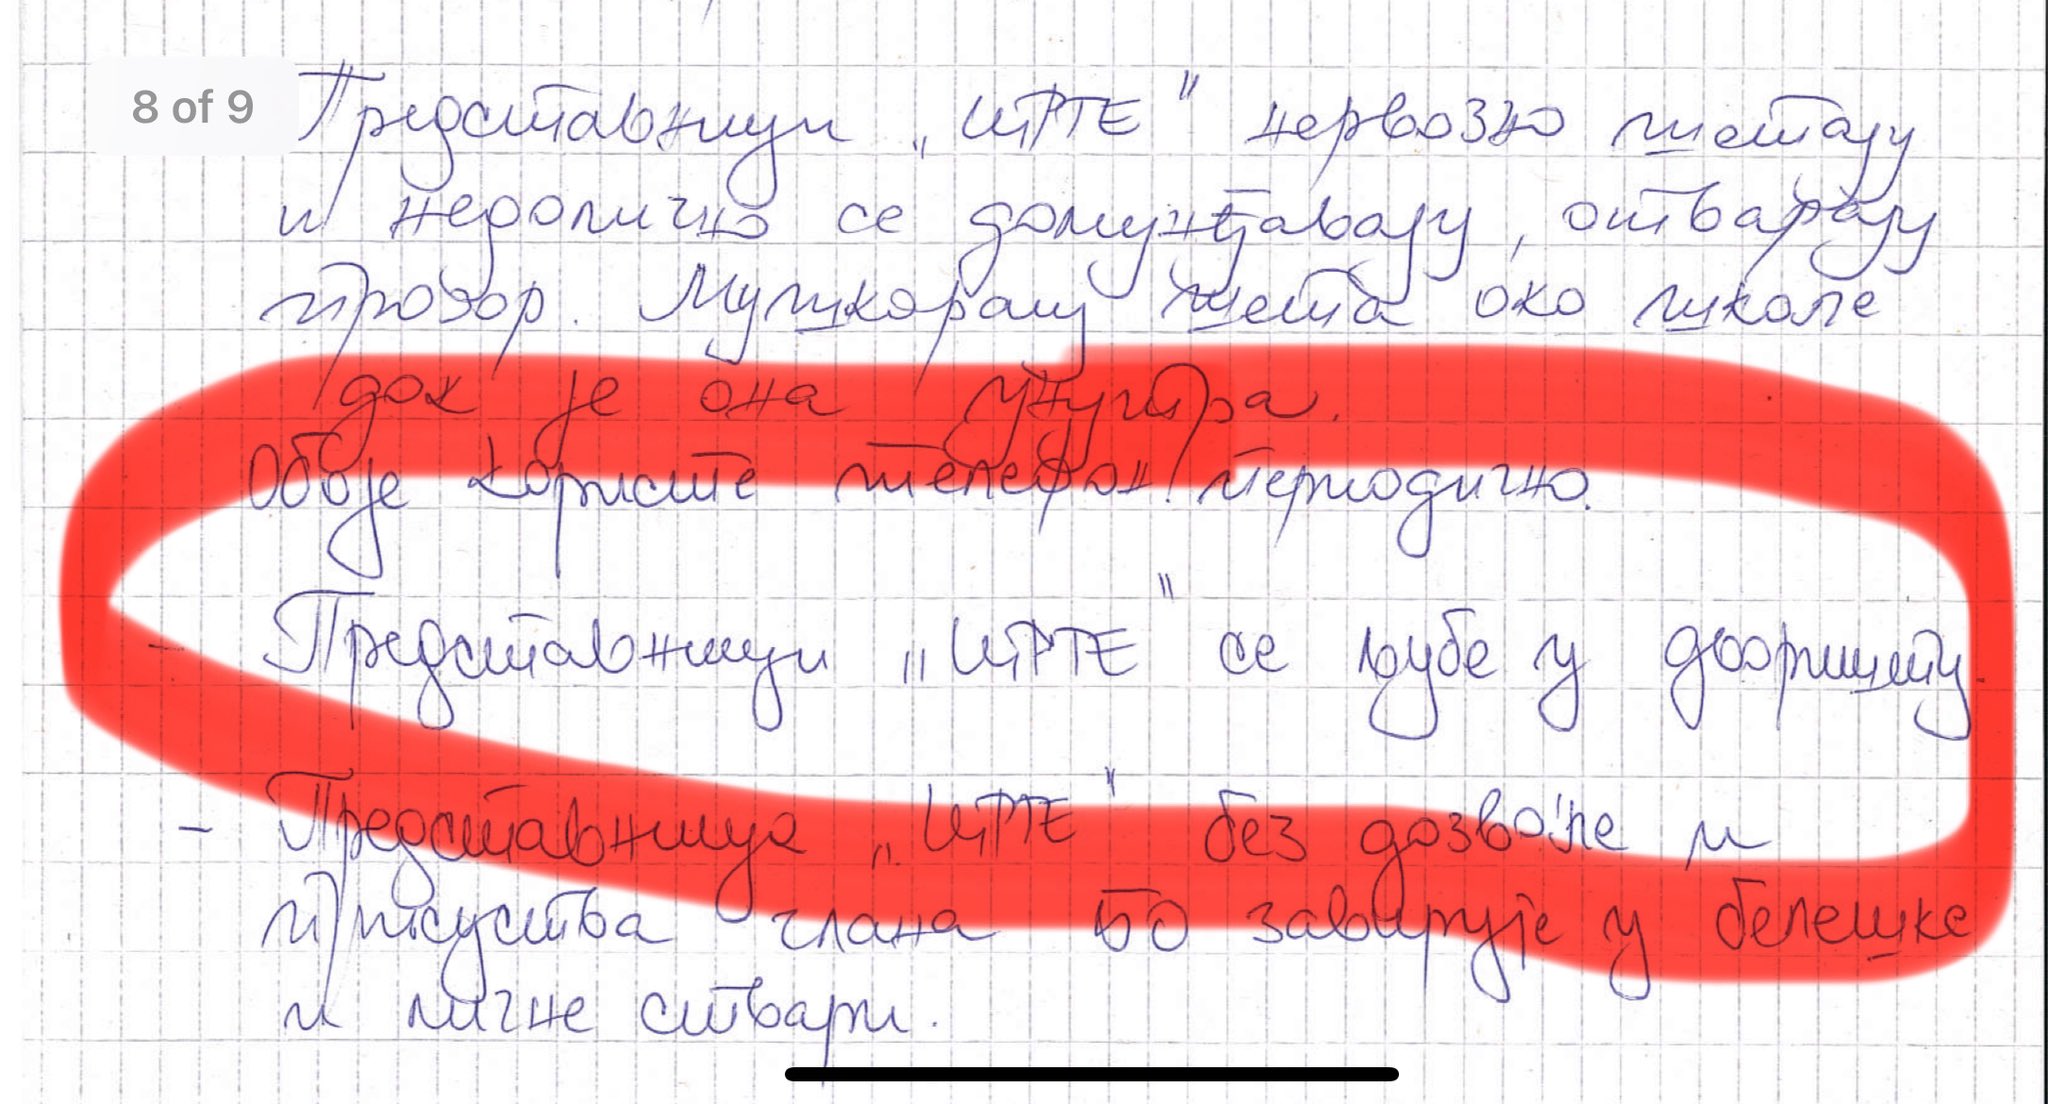 8 of 9
Представници „ЦРТЕ" нервозно шетају
и недолично се домунђавају, отварају
прозор. Мушкарац шета око школе
док је она унутра.
Обоје користе телефон периодично.
- Представници „ЦРТЕ" се љубе у дворишту.
- Представница „ЦРТЕ" без дозволе и
присуства члана БО завирује у белешке
и личне ствари.